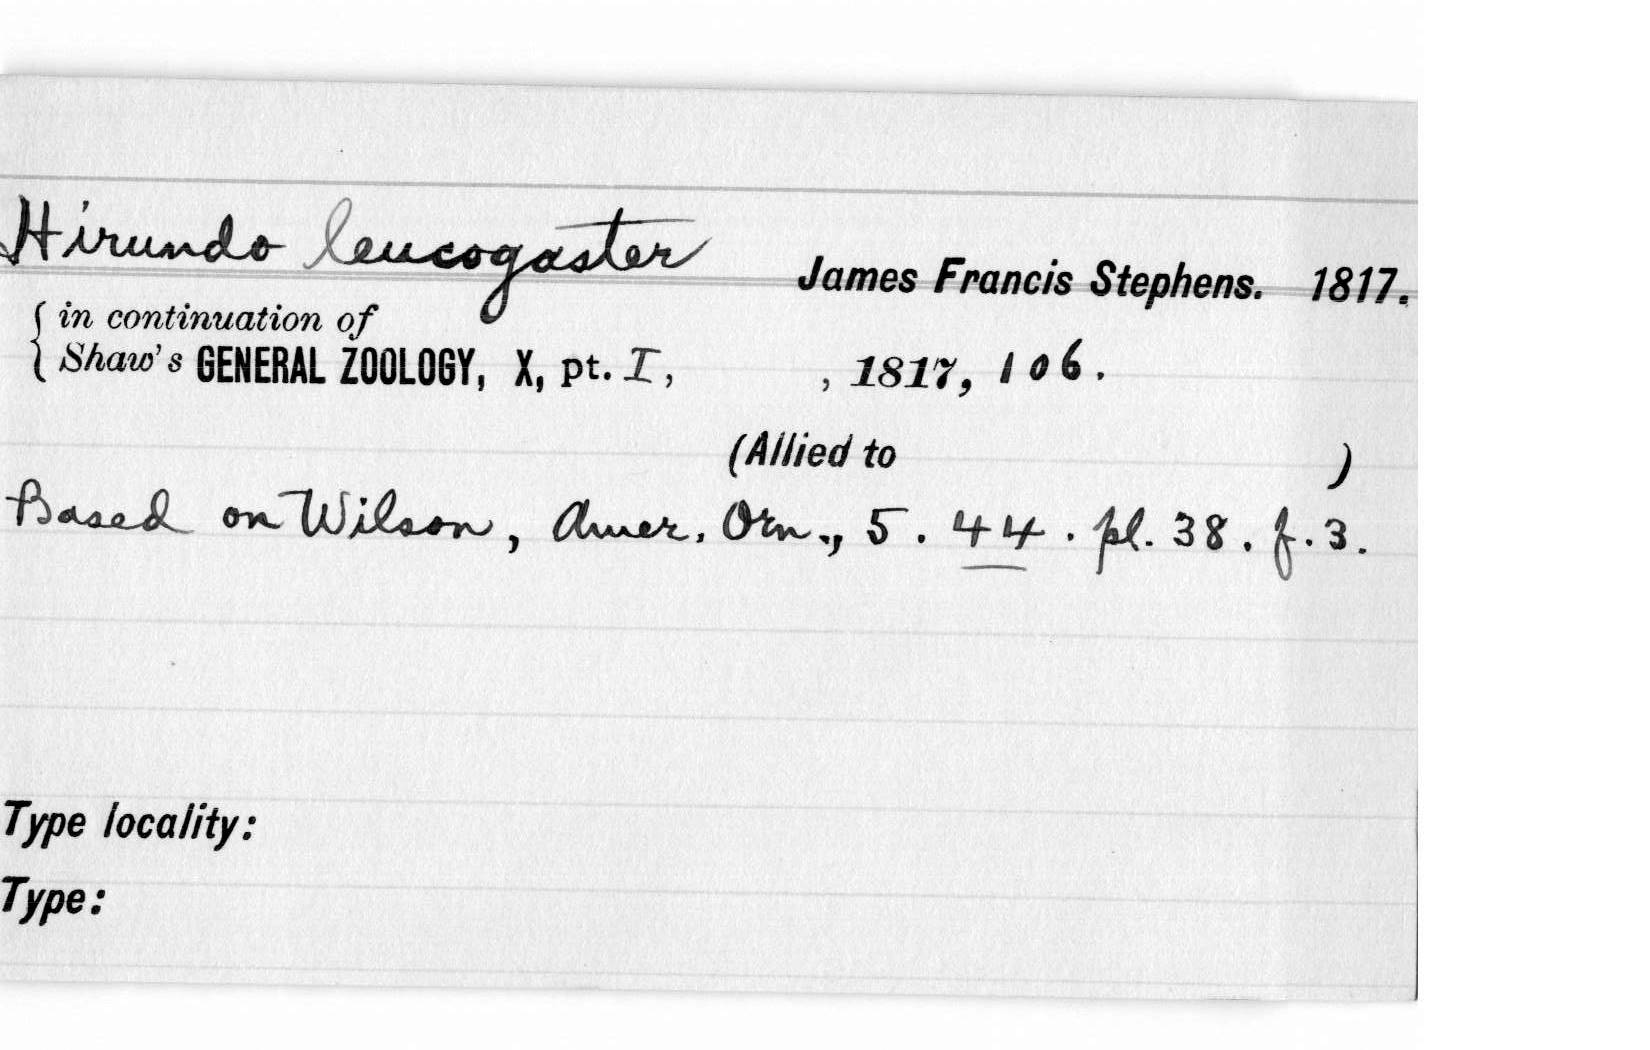 Hirundo leucogaster James Francis Stephens. 1817.
in continuation of
Shaw's GENERAL ZOOLOGY, X, pt. I, , 1817, 106.
(Allied to )
Based on Wilson, Amer. Orn., 5. 44. pl. 38. f. 3.
Type locality:
Type: